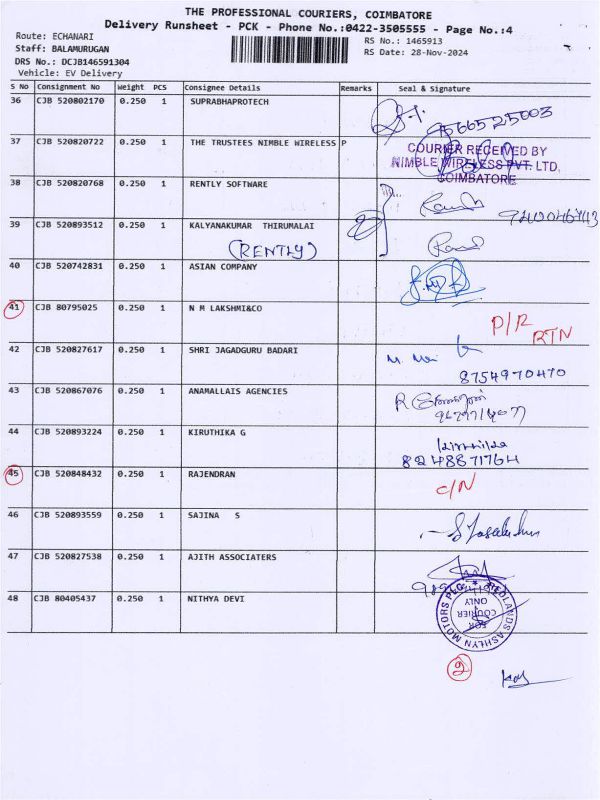 THE PROFESSIONAL COURIERS, COIMBATORE
Delivery Runsheet - PCK - Phone No.:0422-3505555 - Page No.:4
Route: ECHANARI
RS No.: 1465913
Staff: BALAMURUGAN
RS Date: 28-Nov-2024
DRS No.: DCJB146591304
Vehicle: EV Delivery
S No Consignment No Weight PCS Consignee Details Remarks Seal & Signature
36 CJB 520802170 0.250 1 SUPRABHAPROTECH
9566525003
37 CJB 520820722 0.250 1 THE TRUSTEES NIMBLE WIRELESS P
COURIER RECEIVED BY
NIMBLE WIRELESS PVT. LTD
COIMBATORE
38 CJB 520820768 0.250 1 RENTLY SOFTWARE
39 CJB 520893512 0.250 1 KALYANAKUMAR THIRUMALAI
(RENTLY)
40 CJB 520742831 0.250 1 ASIAN COMPANY
41 CJB 80795025 0.250 1 N M LAKSHMI&CO
P/R
RTN
42 CJB 520827617 0.250 1 SHRI JAGADGURU BADARI
8754970470
43 CJB 520867076 0.250 1 ANAMALLAIS AGENCIES
44 CJB 520893224 0.250 1 KIRUTHIKA G
8248871764
45 CJB 520848432 0.250 1 RAJENDRAN
C/N
46 CJB 520893559 0.250 1 SAJINA S
47 CJB 520827538 0.250 1 AJITH ASSOCIATERS
48 CJB 80405437 0.250 1 NITHYA DEVI
REDLANDS ASHLYN MOTORS PLC
FOR
COURIER
ONLY
2